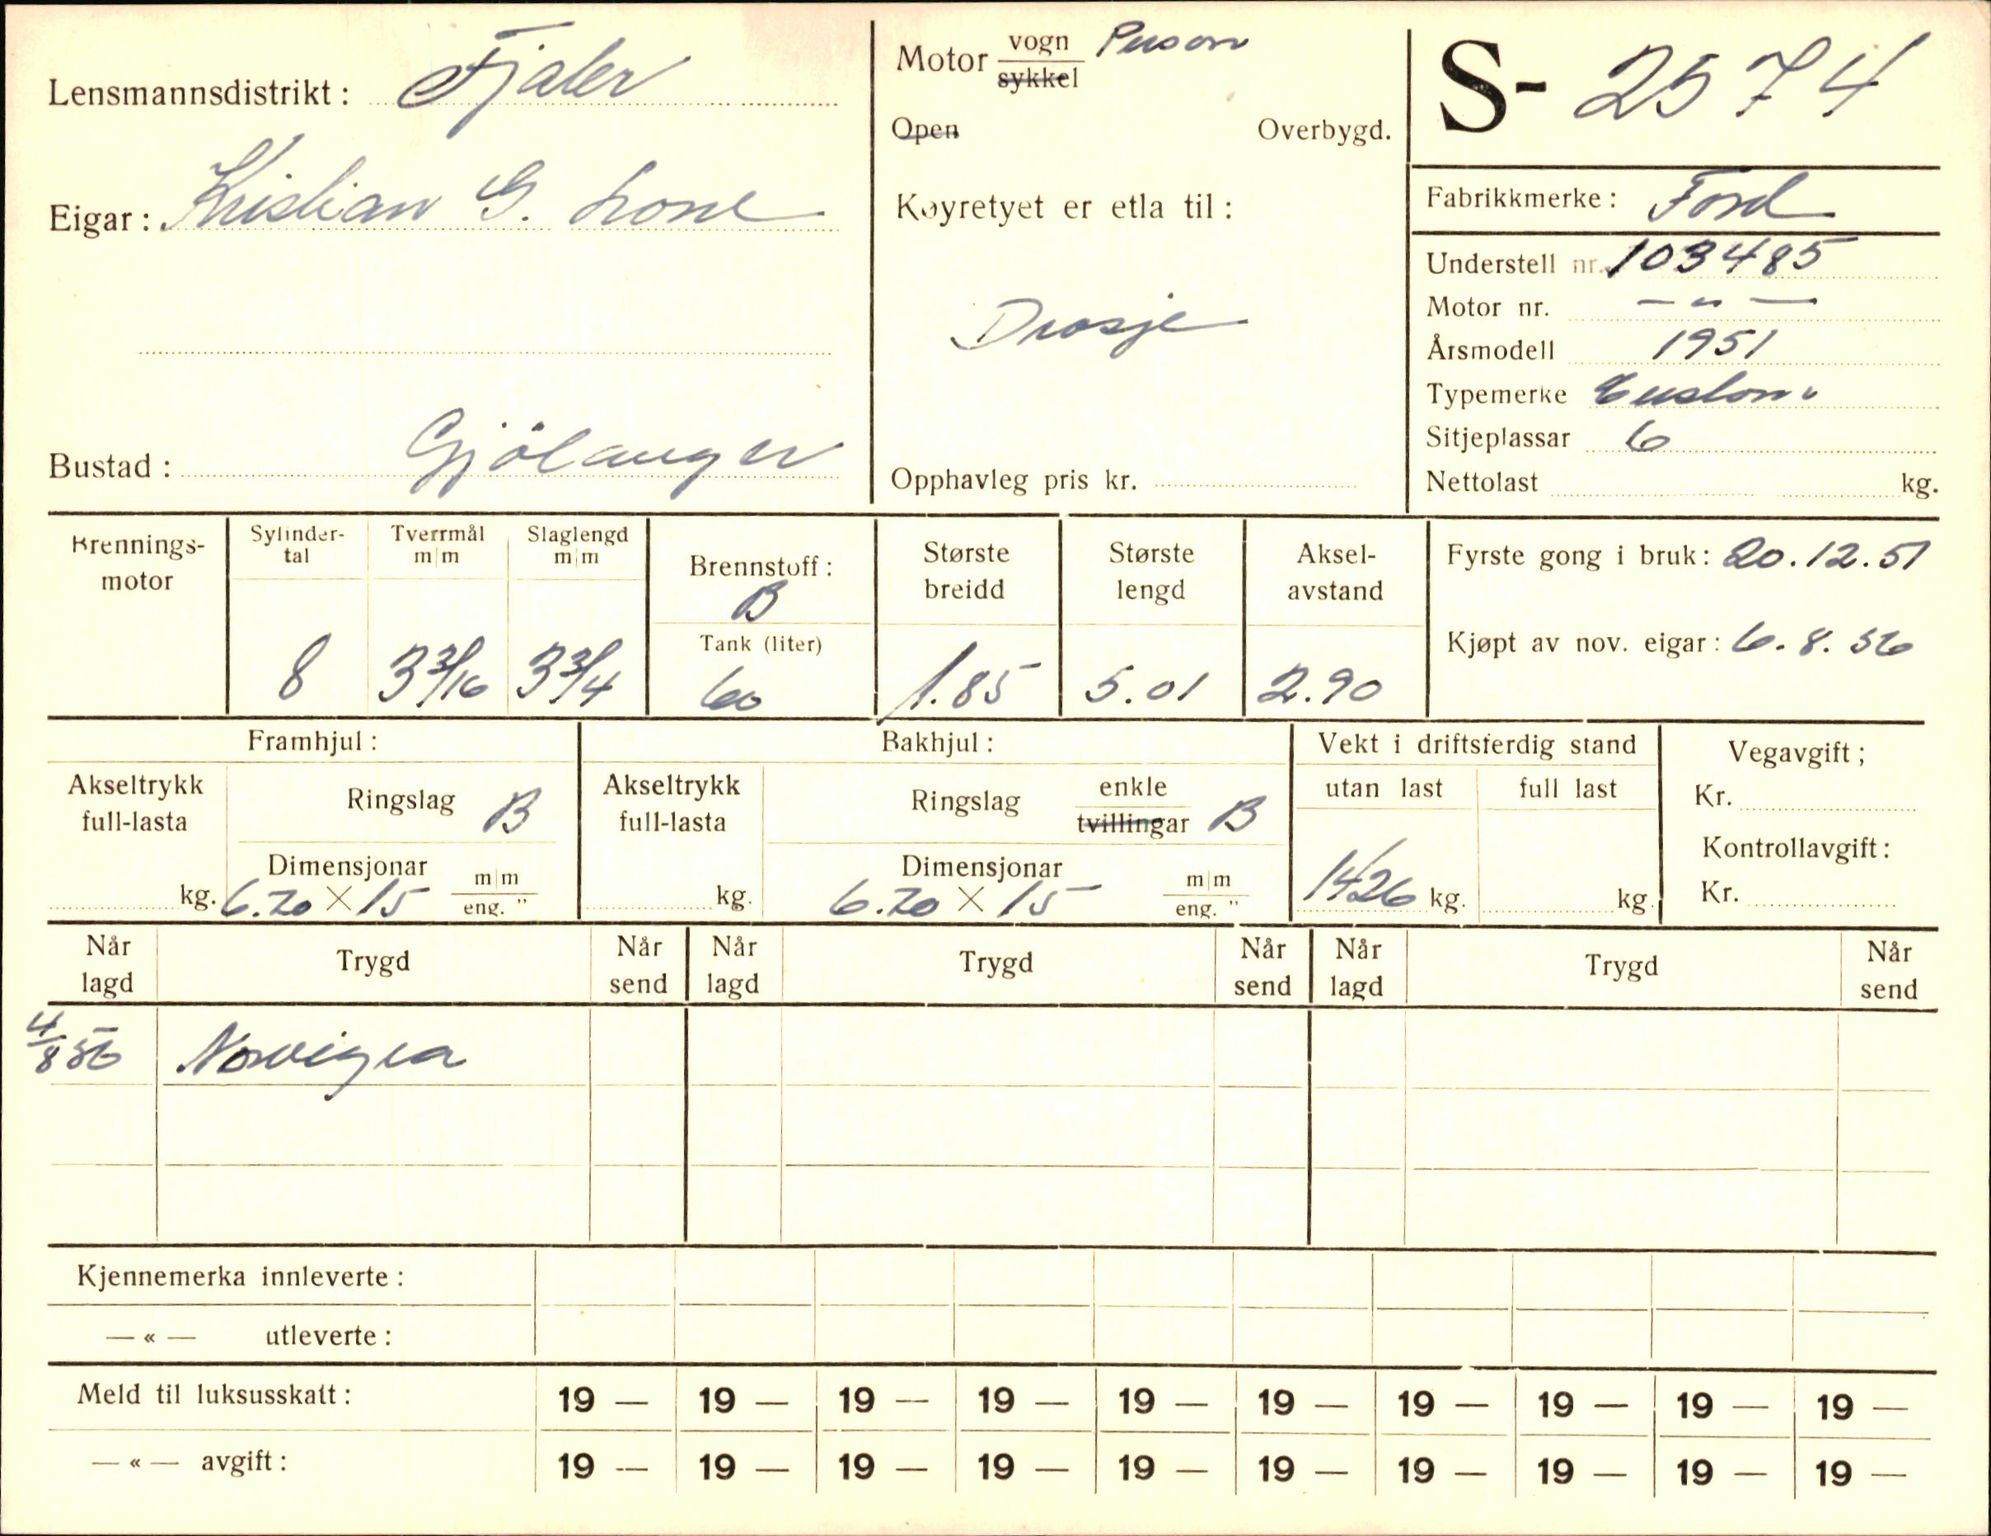 Lensmannsdistrikt: Fjaler
Eigar: Kristian G. Lone
Bustad: Gjölanger
Motor vogn Person
sykkel
Open Overbygd.
Køyretyet er etla til:
Drosje
Opphavleg pris kr.
S- 2574
Fabrikkmerke: Ford
Understell nr. 103485
Motor nr. — „ —
Årsmodell 1951
Typemerke Custom
Sitjeplassar 6
Nettolast kg.
Brennings-
motor
Sylinder-
tal
8
Tverrmål
m|m
3 3/16
Slaglengd
m|m
3 3/4
Brennstoff:
B
Tank (liter)
60
Største
breidd
1.85
Største
lengd
5.01
Aksel-
avstand
2.90
Fyrste gong i bruk: 20.12.51
Kjøpt av nov. eigar: 6.8.56
Framhjul:
Akseltrykk
full-lasta
kg.
Ringslag B
Dimensjonar
6.70 × 15 m|m
eng. "
Bakhjul:
Akseltrykk
full-lasta
kg.
Ringslag enkle
tvillingar B
Dimensjonar
6.70 × 15 m|m
eng. "
Vekt i driftsferdig stand
utan last full last
1426 kg. kg
Vegavgift;
Kr.
Kontrollavgift:
Kr.
Når
lagd Trygd Når
send Når
lagd Trygd Når
send Når
lagd Trygd Når
send
4/8 56 Norvigea
Kjennemerka innleverte:
— « — utleverte:
Meld til luksusskatt: 19 — 19 — 19 — 19 — 19 — 19 — 19 — 19 — 19 — 19 —
— « — avgift: 19 — 19 — 19 — 19 — 19 — 19 — 19 — 19 — 19 — 19 —